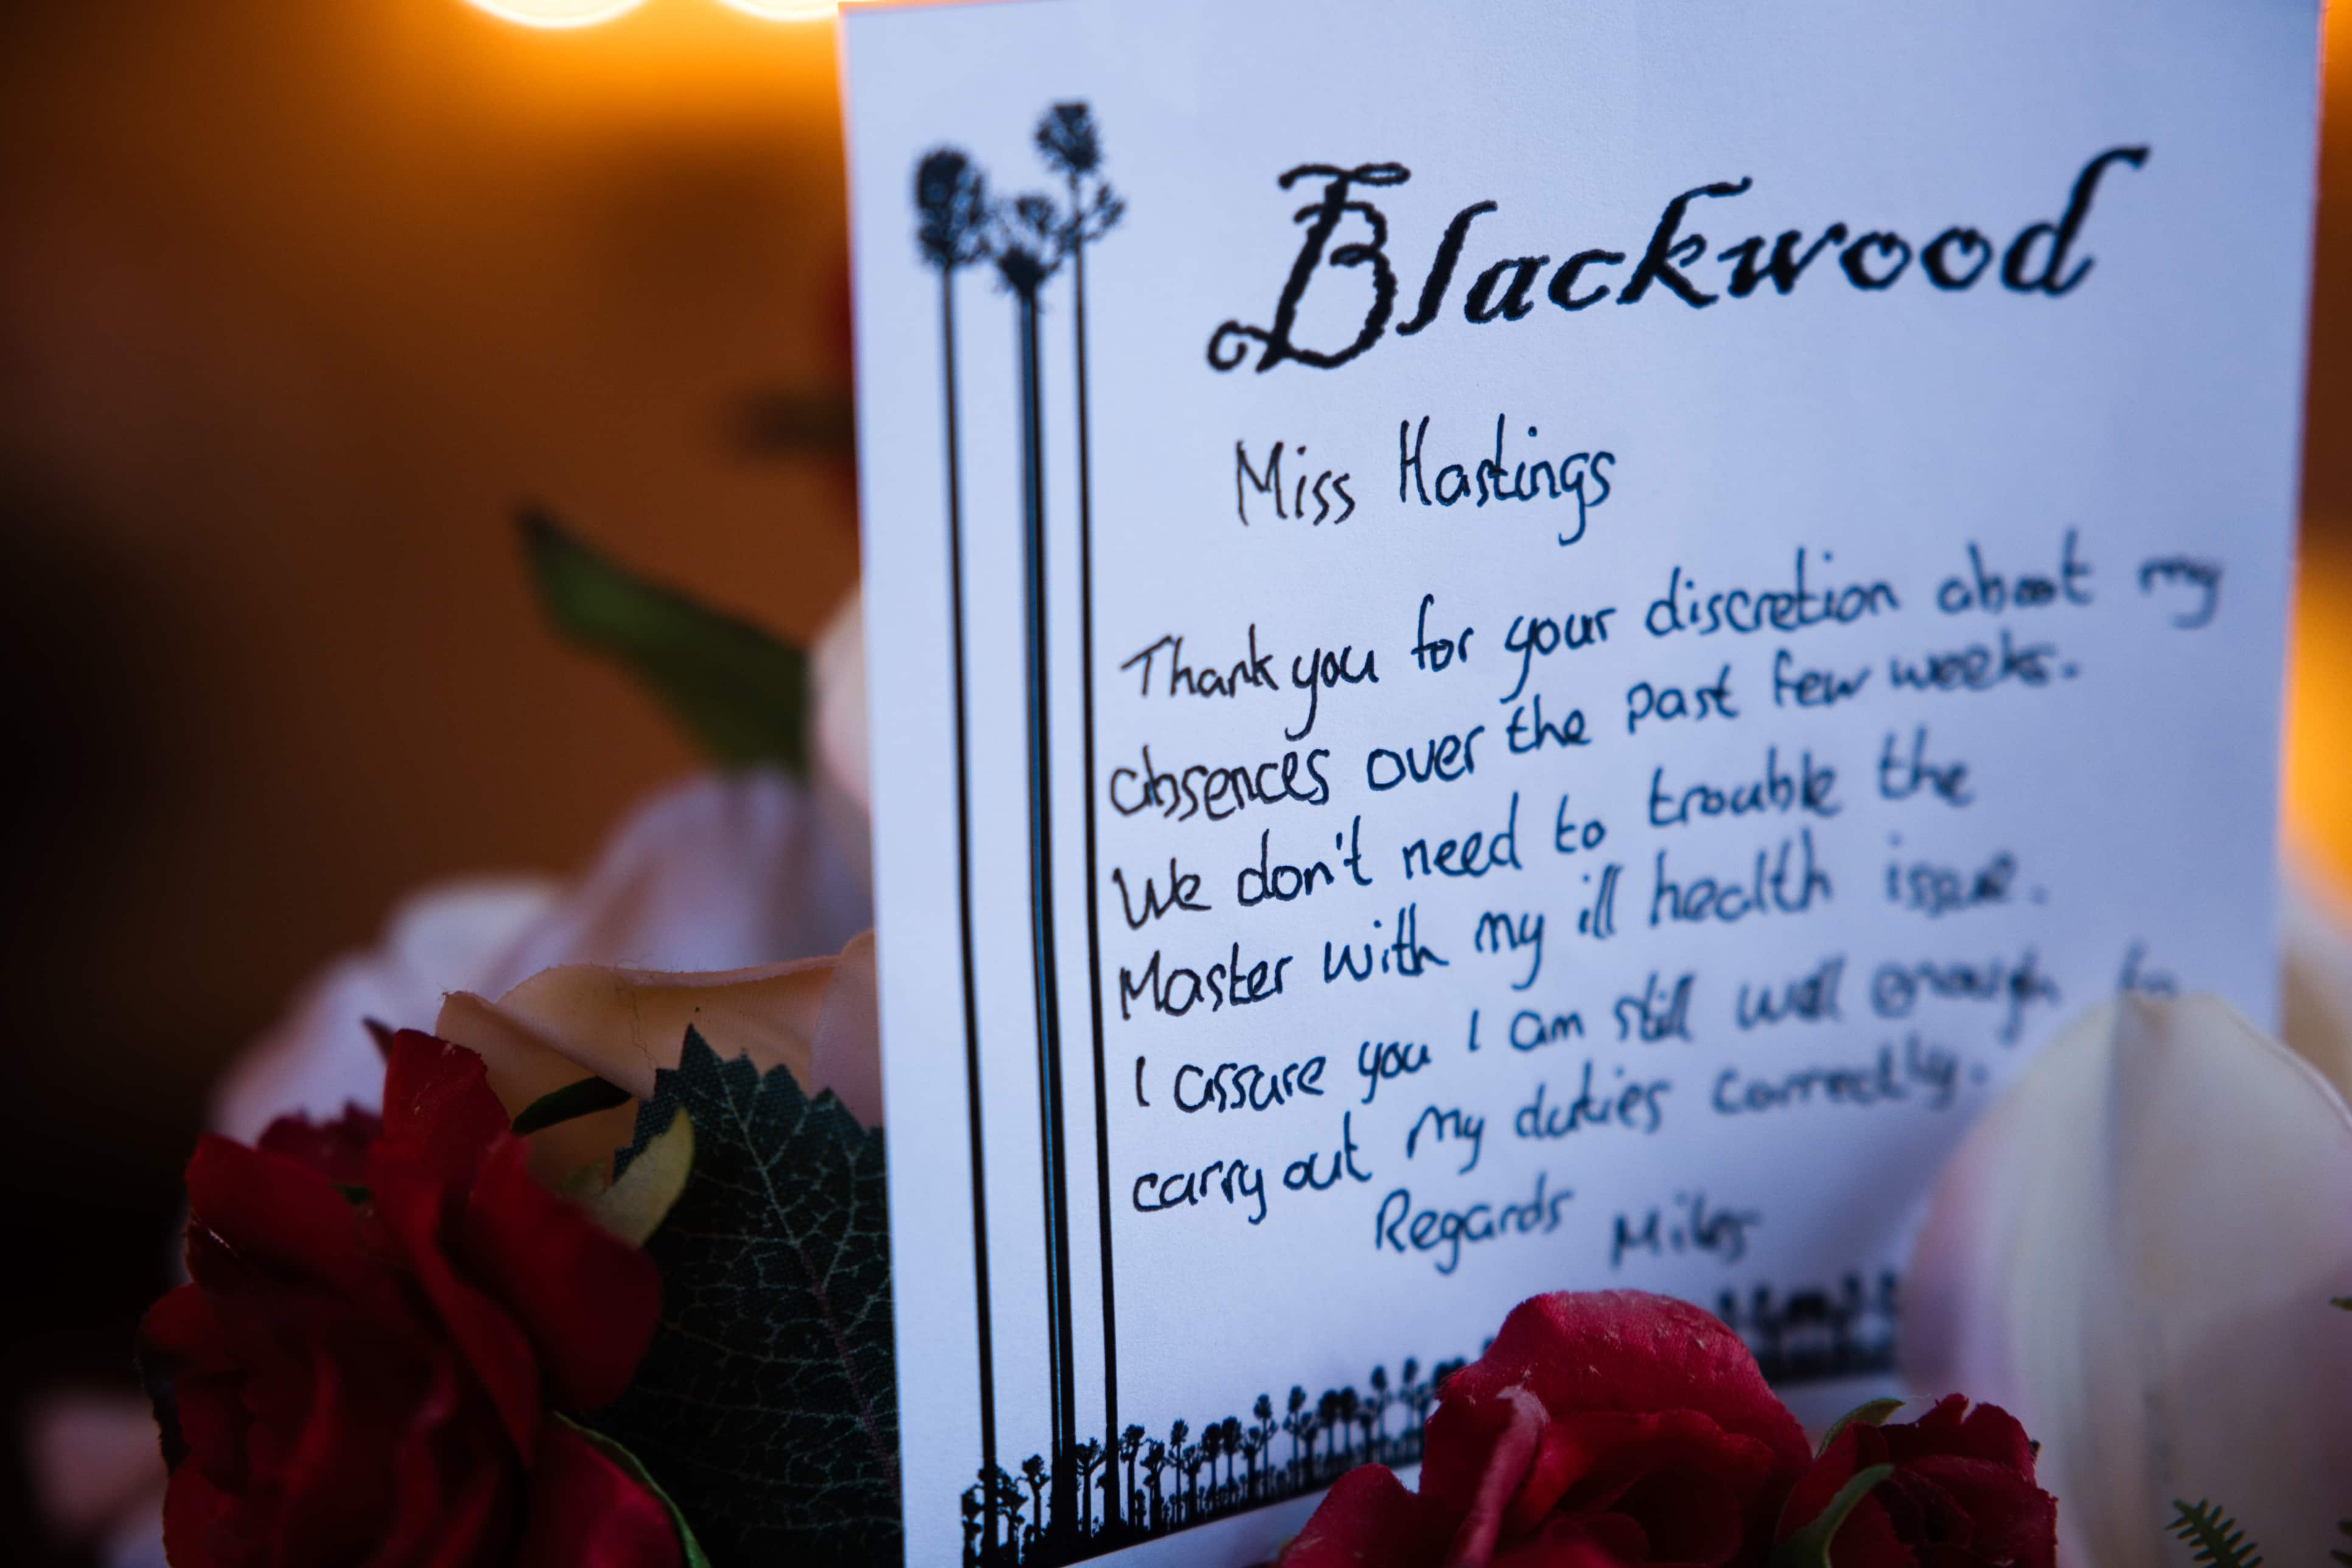 Blackwood
Miss Hastings
Thank you for your discretion about my
absences over the past few weeks.
We don't need to trouble the
Master with my ill health issue.
I assure you I am still well enough to
carry out my duties correctly.
Regards Miles